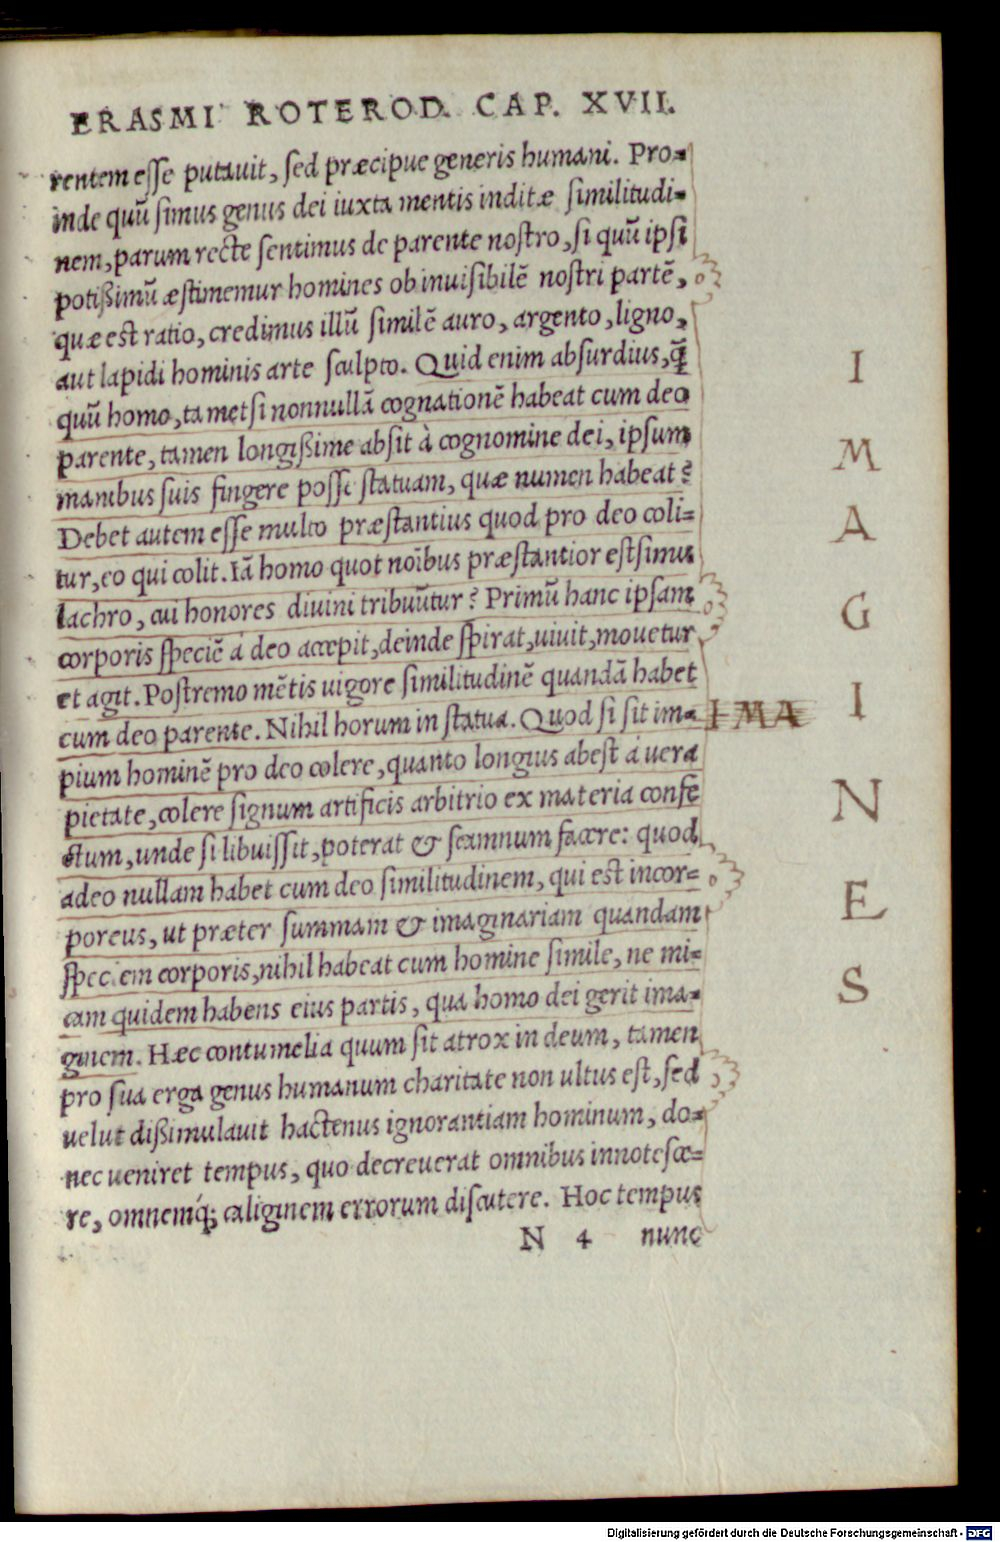 ERASMI ROTEROD. CAP. XVII.
rentem esse putauit, sed præcipue generis humani. Pro-
inde quũ simus genus dei iuxta mentis inditæ similitudi-
nem, parum recte sentimus de parente nostro, si quũ ipsi
potißimũ æstimemur homines ob inuisibilẽ nostri partẽ,
quæ est ratio, credimus illũ similẽ auro, argento, ligno,
aut lapidi hominis arte sculpto. Quid enim absurdius, q̃
quũ homo, tametsi nonnullã cognationẽ habeat cum deo
parente, tamen longißime absit à cognomine dei, ipsum
manibus suis fingere posse statuam, quæ numen habeat?
Debet autem esse multo præstantius quod pro deo coli-
tur, eo qui colit. Iã homo quot noĩbus præstantior est simu
lachro, cui honores diuini tribuũtur? Primũ hanc ipsam
corporis speciẽ à deo accepit, deinde spirat, uiuit, mouetur
et agit. Postremo mẽtis uigore similitudinẽ quandã habet
cum deo parente. Nihil horum in statua. Quod si sit im-
pium hominẽ pro deo colere, quanto longius abest à uera
pietate, colere signum artificis arbitrio ex materia confe
ctum, unde si libuisset, poterat & scamnum facere: quod
adeo nullam habet cum deo similitudinem, qui est incor-
poreus, ut præter summam & imaginariam quandam
speciem corporis, nihil habeat cum homine simile, ne mi-
cam quidem habens eius partis, qua homo dei gerit ima-
ginem. Hæc contumelia quum sit atrox in deum, tamen
pro sua erga genus humanum charitate non ultus est, sed
uelut dißimulauit hactenus ignorantiam hominum, do-
nec ueniret tempus, quo decreuerat omnibus innotesce-
re, omnemq́; caliginem errorum discutere. Hoc tempus
N 4 nunc
IMA
I
M
A
G
I
N
E
S
Digitalisierung gefördert durch die Deutsche Forschungsgemeinschaft - DFG